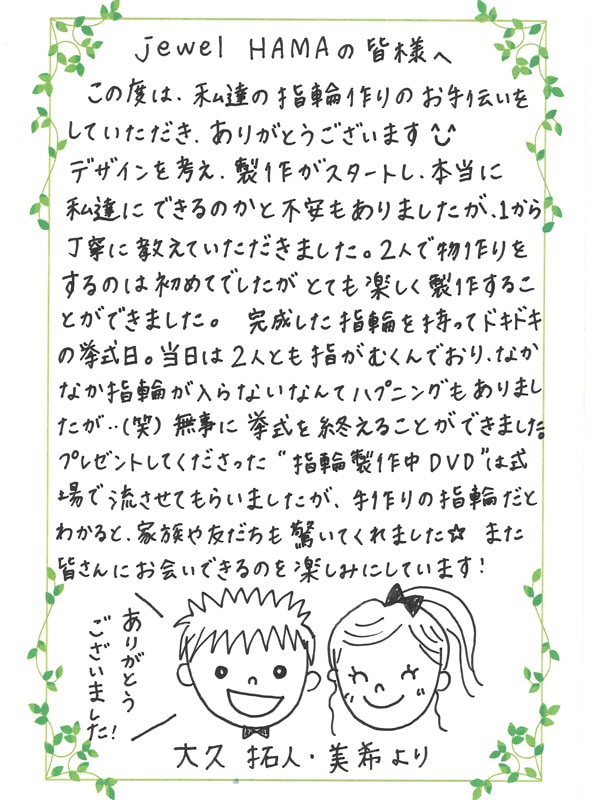 jewel HAMAの皆様へ
この度は、私達の指輪作りのお手伝いを
していただき、ありがとうございます
デザインを考え、製作がスタートし、本当に
私達にできるのかと不安もありましたが、1から
丁寧に教えていただきました。2人で物作りを
するのは初めてでしたがとても楽しく製作するこ
とができました。 完成した指輪を持ってドキドキ
の挙式日。当日は2人とも指がむくんでおり、なか
なか指輪が入らないなんてハプニングもありまし
たが‥(笑) 無事に挙式を終えることができました。
プレゼントしてくださった“指輪製作中DVD”は式
場で流させてもらいましたが、手作りの指輪だと
わかると、家族や友だちも驚いてくれました☆ また
皆さんにお会いできるのを楽しみにしています!
ありがとう
ございました!
大久 拓人・美希より